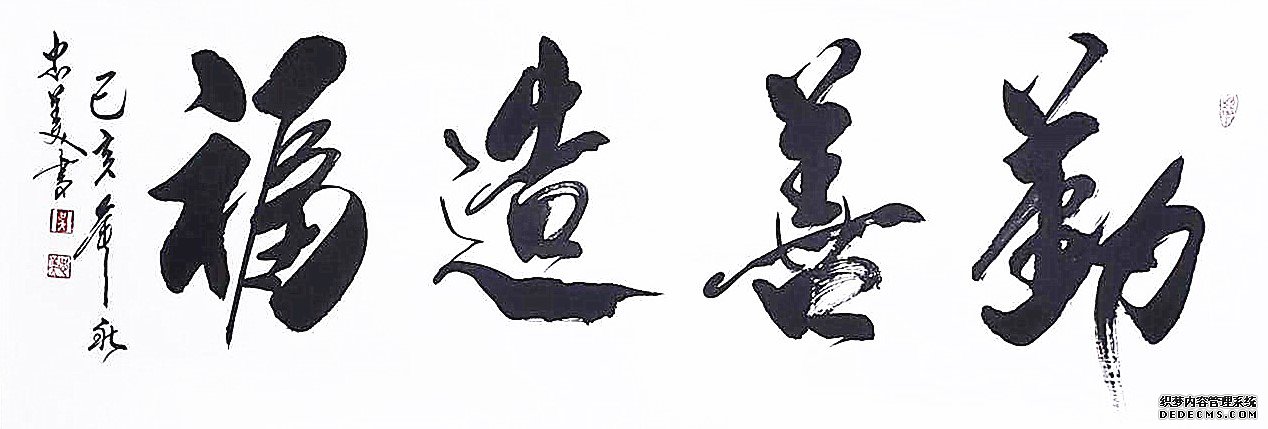 勤善造福
己亥年秋
忠美書
织梦内容管理系统
DEDECMS.COM